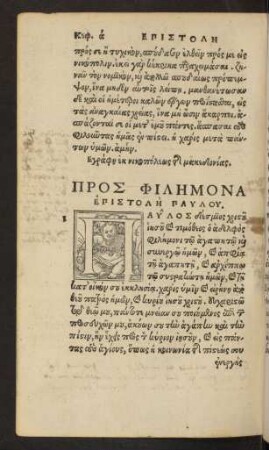 Κεφ. ά ΕΠΙΣΤΟΛΗ
πρός σε ἢ τυχικον, σπούδασον ἐλθεῖν πρός με εἰς
νικόπολιν. ἐκεῖ γὰρ κέκρικα παραχειμάσαι. ζη-
νᾶν τὸν νομικὸν, καὶ ἀπολλὼ σπουδαίως πρόπεμ-
ψον, ἵνα μηδὲν αὐτοῖς λείπῃ. μανθανέτωσαν
δὲ καὶ οἱ ἡμέτεροι καλῶν ἔργων προΐστασθαι, εἰς
τὰς ἀναγκαίας χρείας, ἵνα μὴ ὦσιν ἄκαρποι. ἀσ-
πάζονταί σε οἱ μετ' ἐμοῦ πάντες. ἄσπασαι τοὺς
φιλοῦντας ἡμᾶς ἐν πίστει. ἡ χάρις μετὰ πάν-
των ὑμῶν. ἀμήν.
Ἐγράφη ἐκ νικοπόλεως τῆς μακεδονίας.
ΠΡΟΣ ΦΙΛΗΜΟΝΑ
ΕΠΙΣΤΟΛΗ ΠΑΥΛΟΥ.
1 ΠΑΥΛΟΣ δέσμιος χριστοῦ
ἰησοῦ καὶ τιμόθεος ὁ ἀδελφὸς
φιλήμονι τῷ ἀγαπητῷ καὶ
συνεργῷ ἡμῶν, καὶ ἀπφίᾳ
τῇ ἀγαπητῇ, καὶ ἀρχίππῳ
τῷ συστρατιώτῃ ἡμῶν, καὶ τῇ
κατ' οἶκόν σου ἐκκλησίᾳ. χάρις ὑμῖν καὶ εἰρήνη ἀπὸ
θεοῦ πατρὸς ἡμῶν, καὶ κυρίου ἰησοῦ χριστοῦ. εὐχαριστῶ
τῷ θεῷ μου, πάντοτε μνείαν σου ποιούμενος ἐπὶ τῶν
προσευχῶν μου, ἀκούων σου τὴν ἀγάπην καὶ τὴν
πίστιν, ἣν ἔχεις πρὸς τὸν κύριον ἰησοῦν, καὶ εἰς πάν-
τας τοὺς ἁγίους, ὅπως ἡ κοινωνία τῆς πίστεώς σου
ἐνεργὸς